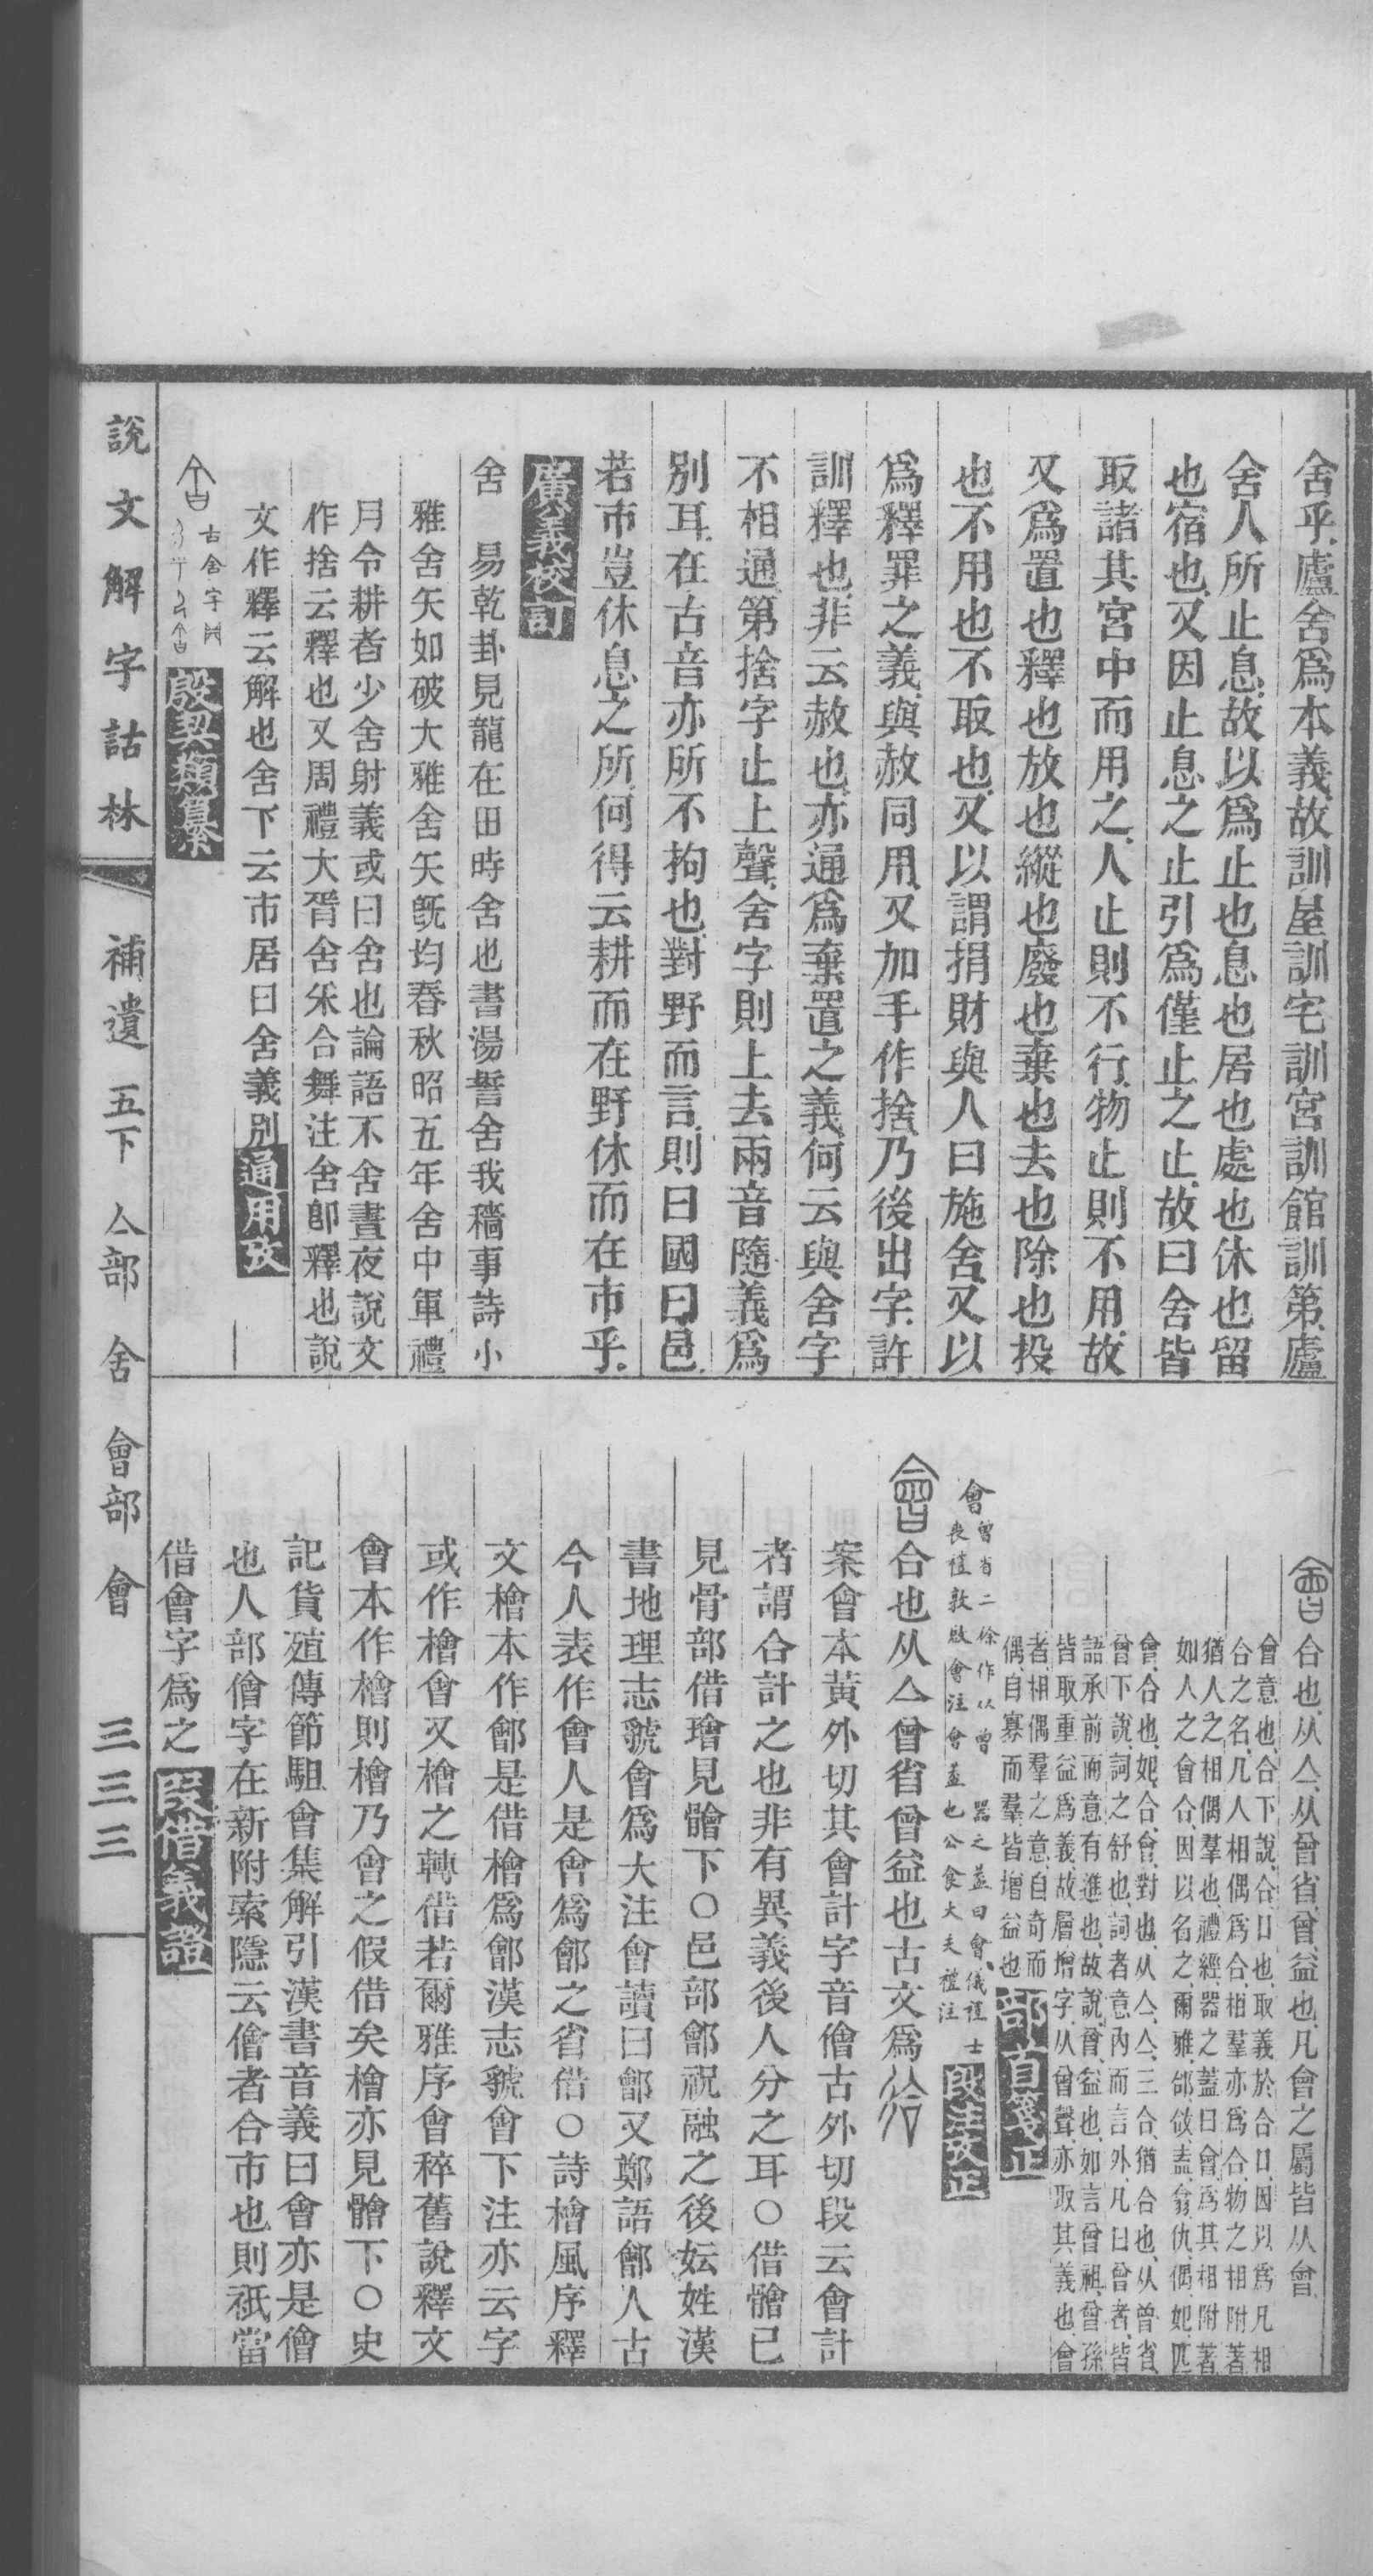 舍乎、廬舍爲本義、故訓屋訓宅訓宮訓館訓第、廬
舍人所止息、故以爲止也息也居也處也休也留
也宿也、又因止息之止引爲僅止之止、故曰舍皆
取諸其宮中而用之、人止則不行、物止則不用、故
又爲置也釋也放也縱也廢也棄也去也除也投
也不用也不取也、又以謂捐財與人曰施舍、又以
爲釋罪之義、與赦同用、又加手作捨、乃後出字、許
訓釋也、非云赦也、亦通爲棄置之義、何云與舍字
不相通、第捨字止上聲、舍字則上去兩音隨義爲
別耳、在古音亦所不拘也、對野而言、則曰國曰邑、
若市豈休息之所、何得云耕而在野休而在市乎、
廣義校訂
舍　易乾卦見龍在田時舍也書湯誓舍我穡事詩小
雅舍矢如破大雅舍矢旣均春秋昭五年舍中軍禮
月令耕者少舍射義或曰舍也論語不舍晝夜說文
作捨云釋也又周禮大胥舍采合舞注舍卽釋也說
文作釋云解也舍下云市居曰舍義別 通用攷
古舍字 殷契類纂
合也、从亼、从曾省、曾、益也、凡會之屬皆从會、
會意也、合下說、合、口也、取義於合口、因以爲凡相
合之名、凡人相偶爲合、相羣亦爲合、物之相附著
猶人之相偶羣也、禮經、器之蓋曰會、爲其相附著
如人之會合、因以名之、爾雅、郃、敆、盍、翕、仇、偶、妃、匹、
會、合也、妃、合、會、對也、从亼、亼、三合、猶合也、从曾省、
曾下說、詞之舒也、詞者意內而言外、凡曰曾者、皆
語承前而意有進也、故說、曾、益也、如言曾祖、曾孫、
皆取重益爲義、故層增字、从曾聲、亦取其義也、會
者、相偶羣之意、自奇而
偶、自寡而羣、皆增益也、 部首箋正
會 曾省二徐作从曾 器之蓋曰會、儀禮士
喪禮敦啟會注會蓋也公食大夫禮注 段注攷正
合也从亼曾省曾益也古文爲
案會本黃外切其會計字音儈古外切段云會計
者謂合計之也非有異義後人分之耳○借體已
見骨部借璯見髆下○邑部鄶祝融之後妘姓漢
書地理志虢會爲大注會讀曰鄶又鄭語鄶人古
今人表作會人是會爲鄶之省借○詩檜風序釋
文檜本作鄶是借檜爲鄶漢志虢會下注亦云字
或作檜會又檜之轉借若爾雅序會稡舊說釋文
會本作檜則檜乃會之假借矣檜亦見髆下○史
記貨殖傳節駔會集解引漢書音義曰會亦是儈
也人部儈字在新附索隱云儈者合市也則祇當
借會字爲之 段借義證
說文解字詁林　補遺　五下　亼部　舍　會部　會　三三三